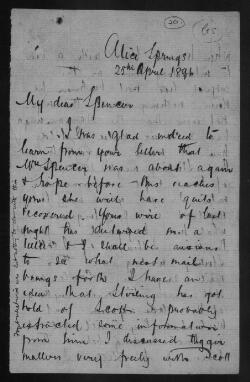 20
Alice Springs
25th April 1896
My dear Spencer
I was glad indeed to
learn from your letter that
Mrs Spencer was about again
& hope before this reaches
you she will have quite
recovered. Your wire of last
night has determined me a
& I shall be anxious
to see what next mail
brings forth I have an
idea that Stirling has got
hold of Scott & probably
extracted some information
from him I discussed
matters very freely with Scott